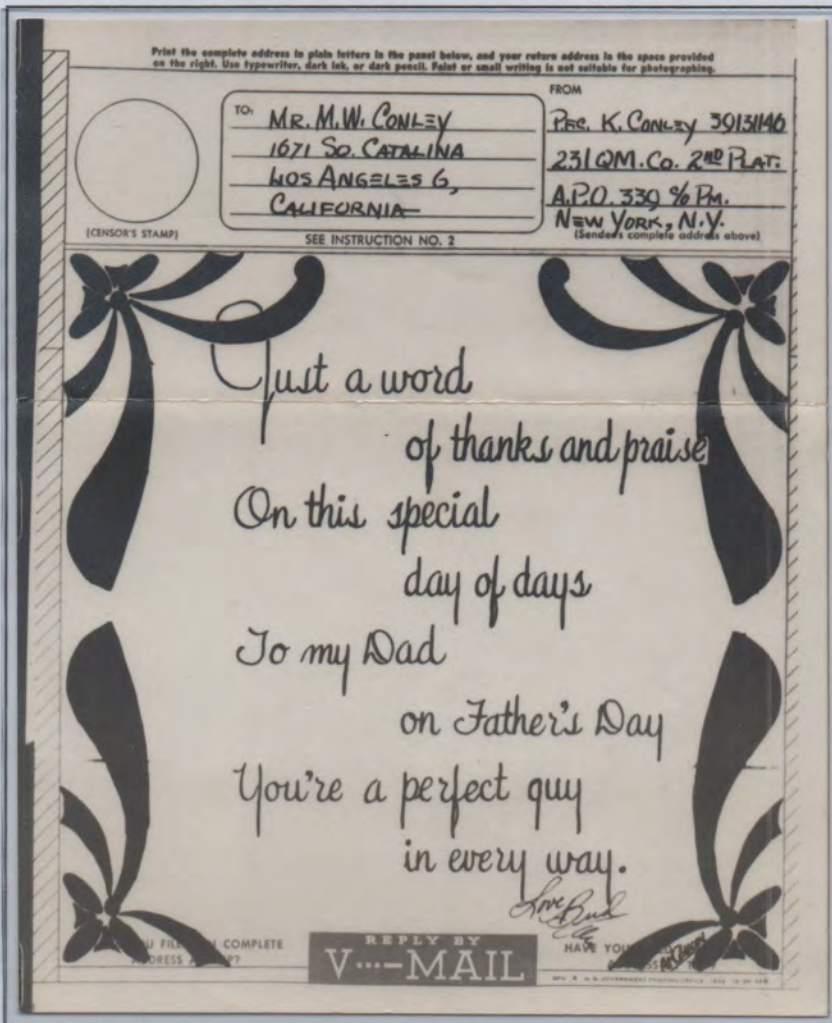 Print the complete address in plain letters in the panel below, and your return address in the space provided
on the right. Use typewriter, dark ink, or dark pencil. Faint or small writing is not suitable for photographing.
(CENSOR'S STAMP)
TO:
MR. M.W. CONLEY
1671 SO. CATALINA
LOS ANGELES 6,
CALIFORNIA
SEE INSTRUCTION NO. 2
FROM
PFC. K. CONLEY 39131146
231 QM. CO. 2ND PLAT.
A.P.O. 339 % PM.
NEW YORK, N.Y.
(Sender's complete address above)
Just a word
of thanks and praise
On this special
day of days
To my Dad
on Father's Day
You're a perfect guy
in every way.
Love
COMPLETE
REPLY BY
V···—MAIL
HAVE YOU
U.S. GOVERNMENT PRINTING OFFICE